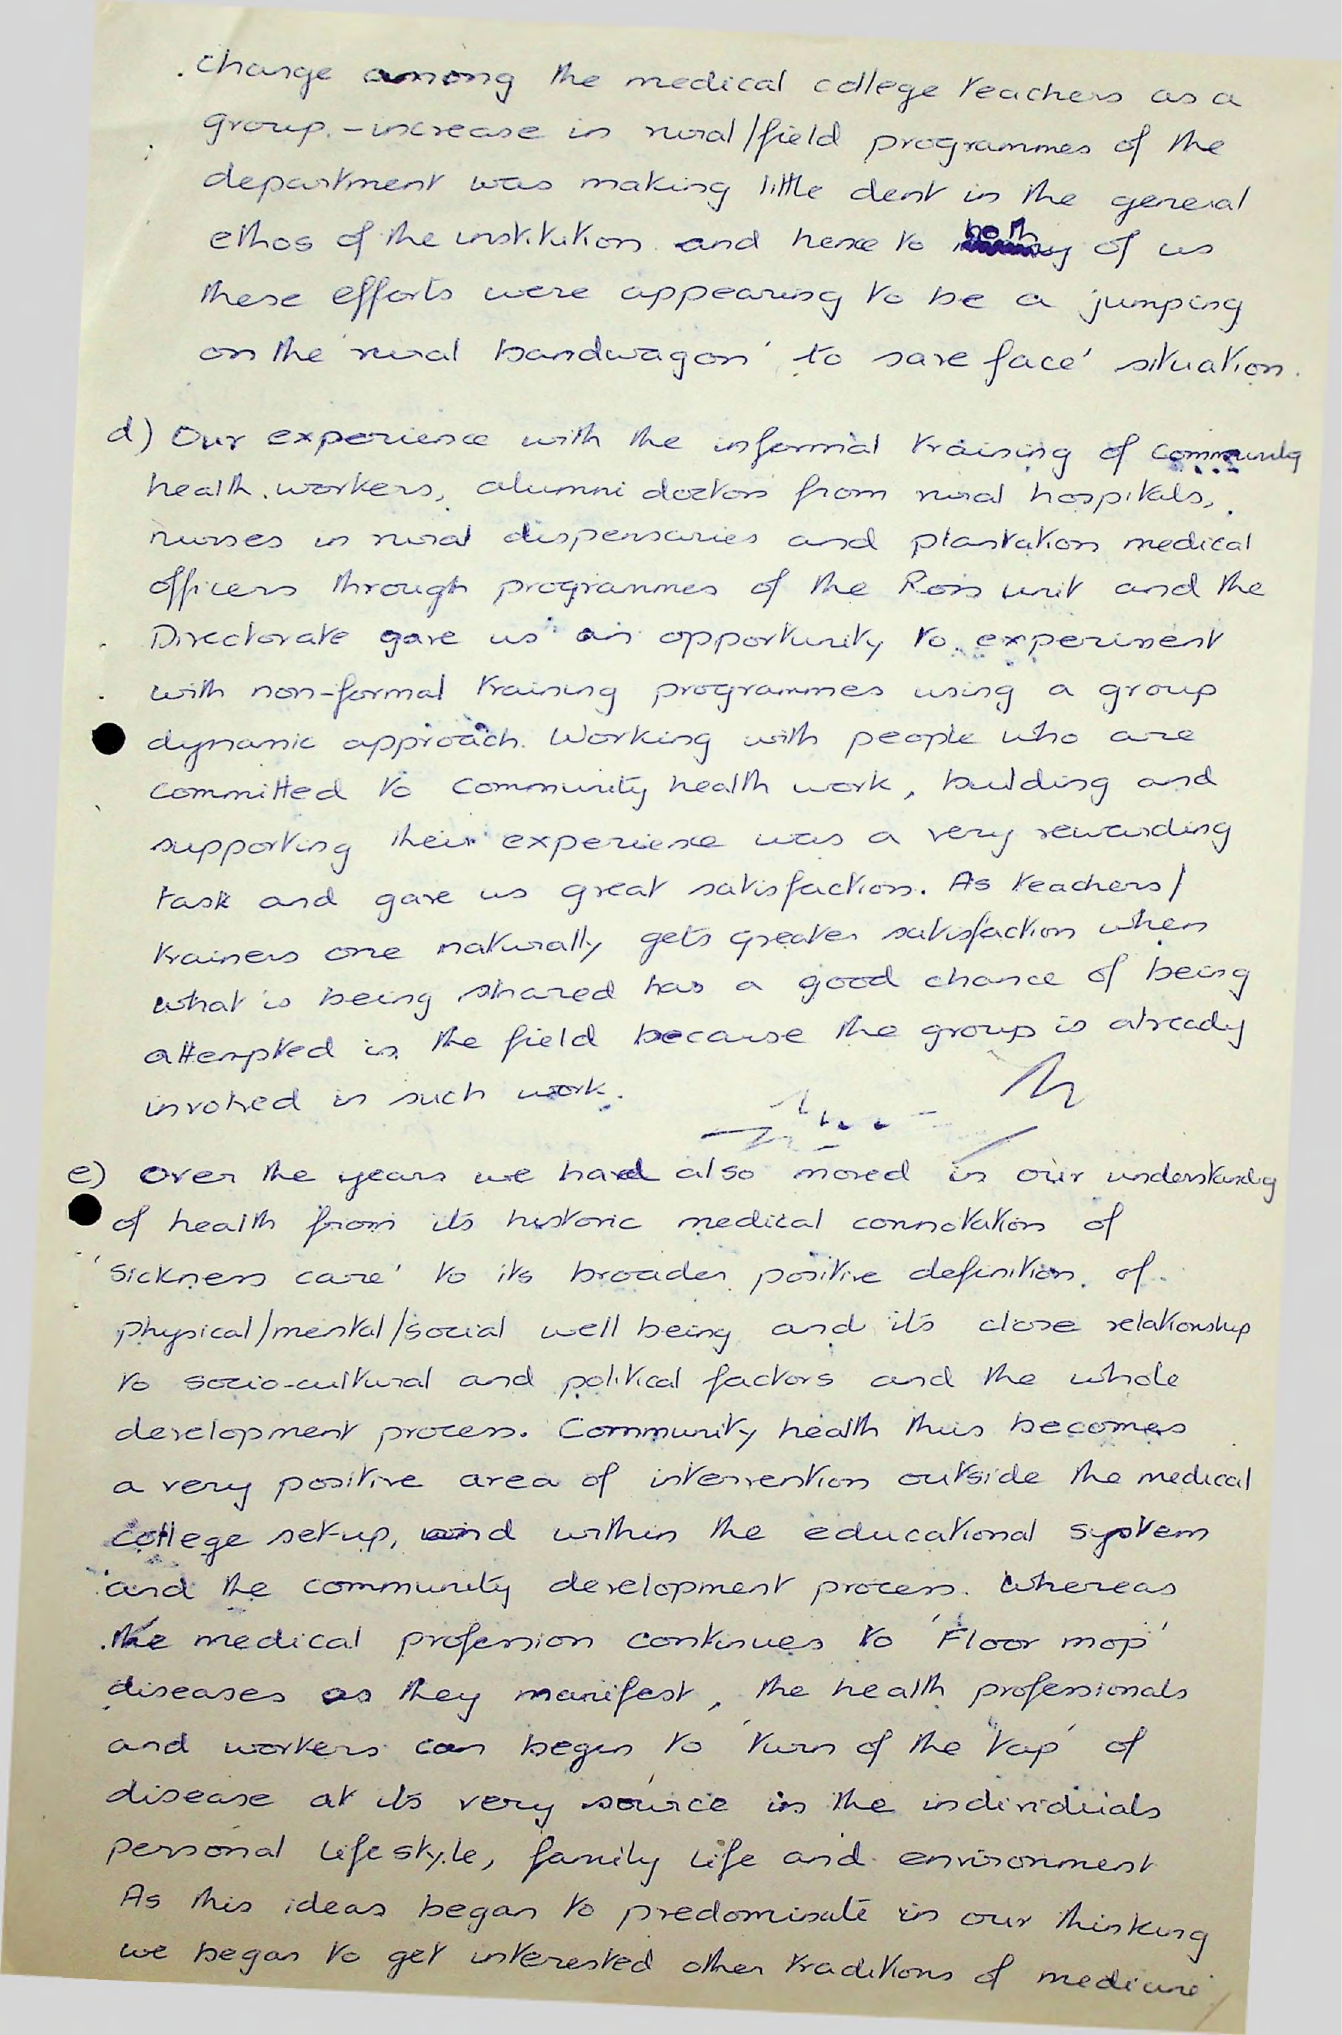 change among the medical college teachers as a
group. - increase in rural/field programmes of the
department was making little dent in the general
ethos of the institution and hence to both of us
these efforts were appearing to be a 'jumping
on the 'rural bandwagon' to save face' situation.
d) Our experience with the informal training of community
health workers, alumni doctors from rural hospitals,
nurses in rural dispensaries and plantation medical
officers through programmes of the Ross unit and the
Directorate gave us an opportunity to experiment
with non-formal training programmes using a group
dynamic approach. Working with people who are
committed to community health work, building and
supporting their experience was a very rewarding
task and gave us great satisfaction. As teachers/
trainers one naturally gets greater satisfaction when
what is being shared has a good chance of being
attempted in the field because the group is already
involved in such work.
e) Over the years we had also moved in our understanding
of health from its historic medical connotation of
'sickness care' to its broader positive definition of
physical/mental/social well being and its close relationship
to socio-cultural and political factors and the whole
development process. Community health thus becomes
a very positive area of intervention outside the medical
college set-up, and within the educational system
and the community development process. Whereas
the medical profession continues to 'Floor mop'
diseases as they manifest, the health professionals
and workers can begin to 'turn of the tap' of
disease at its very source in the individuals
personal lifestyle, family life and environment
As this ideas began to predominate in our thinking
we began to get interested other traditions of medicine